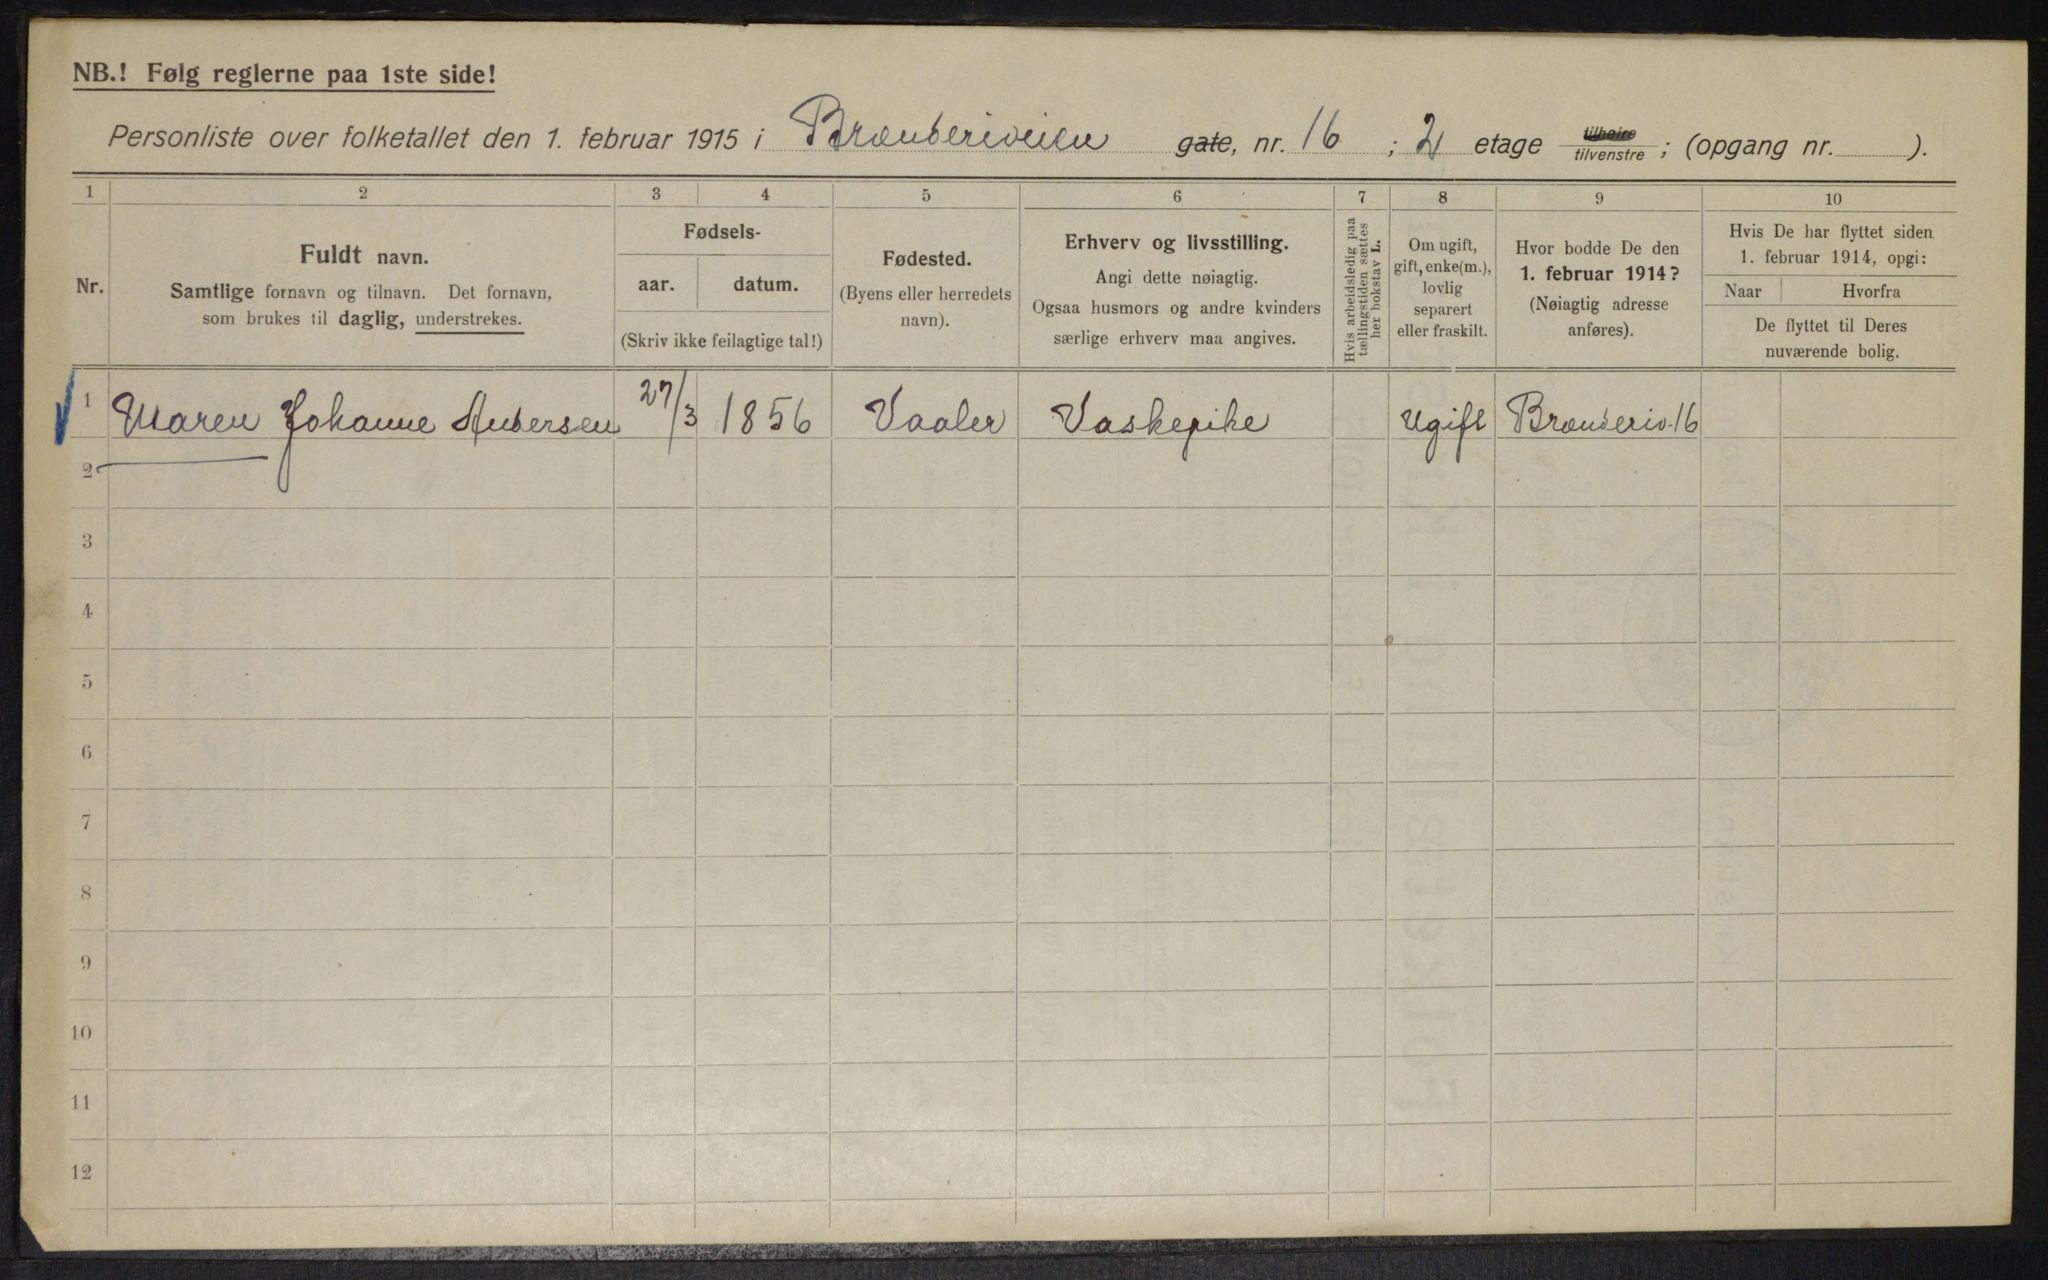 NB.! Følg reglerne paa 1ste side!
Personliste over folketallet den 1. februar 1915 i Brænderiveien gate, nr. 16 ; 2 etage tilhøire tilvenstre ; (opgang nr. ).
1 2 3 4 5 6 7 8 9 10
Nr.
Fuldt navn.
Samtlige fornavn og tilnavn. Det fornavn,
som brukes til daglig, understrekes.
Fødsels-
aar. datum.
(Skriv ikke feilagtige tal!)
Fødested.
(Byens eller herredets
navn).
Erhverv og livsstilling.
Angi dette nøiagtig.
Ogsaa husmors og andre kvinders
særlige erhverv maa angives.
Hvis arbeidsledig paa
tællingstiden sættes
her bokstav L.
Om ugift,
gift, enke(m.),
lovlig
separert
eller fraskilt.
Hvor bodde De den
1. februar 1914?
(Nøiagtig adresse
anføres).
Hvis De har flyttet siden
1. februar 1914, opgi:
Naar Hvorfra
De flyttet til Deres
nuværende bolig.
1 Maren Johanne Andersen 27/3 1856 Vaaler Vaskepike Ugift Brænderiv. 16
2
3
4
5
6
7
8
9
10
11
12